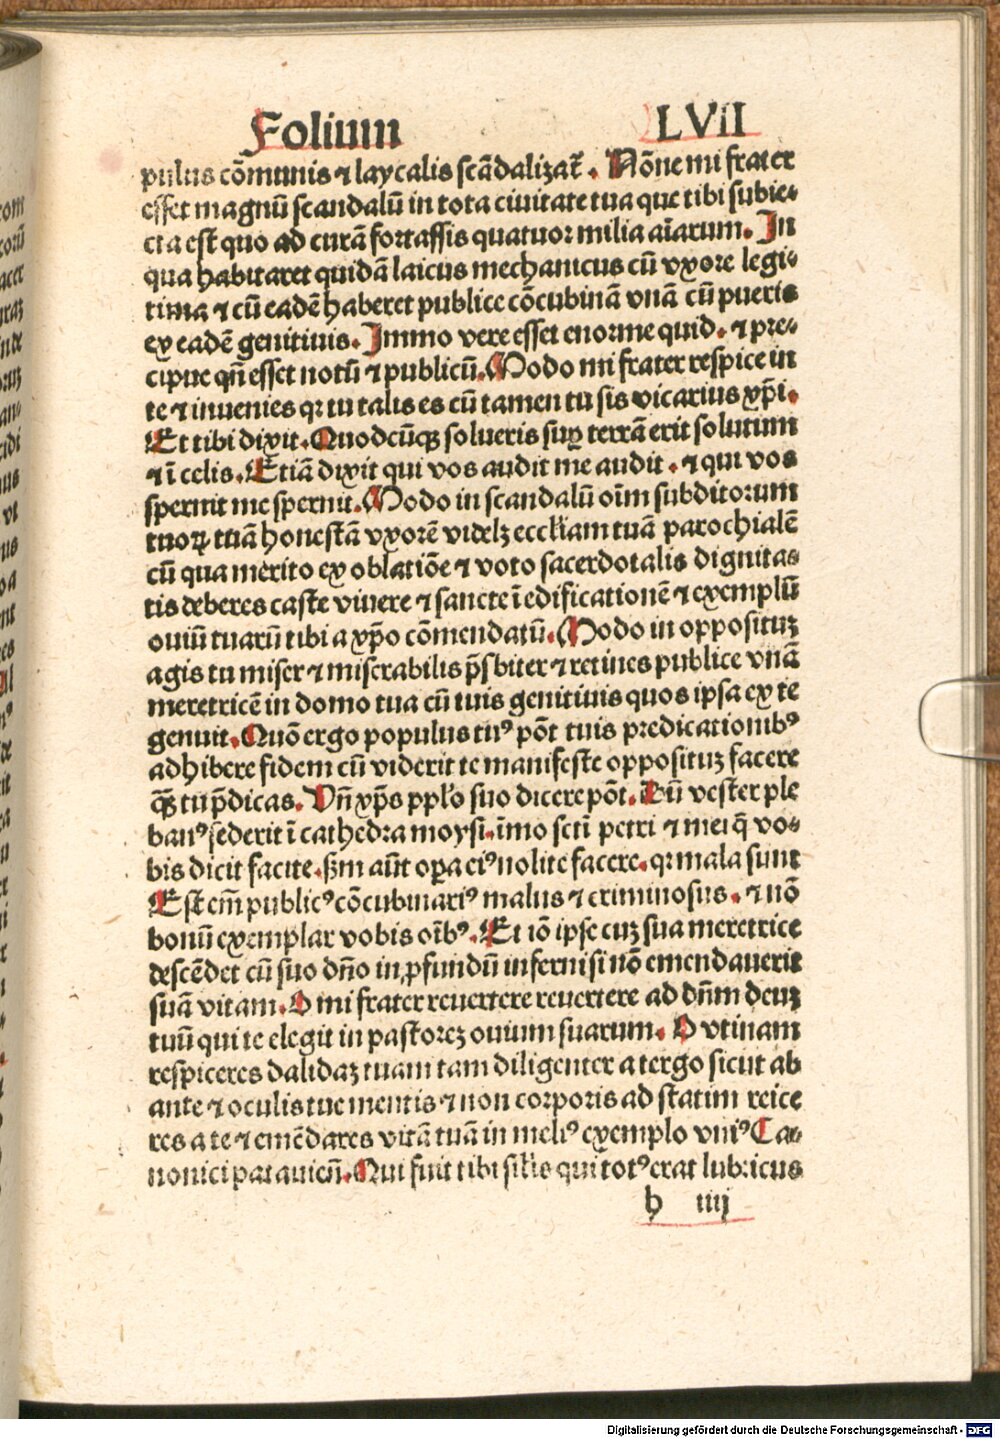 Folium LVII
pulus cōmunis ⁊ laycalis scādalizat̃. Nōne mi frater
esset magnū scandalū in tota ciuitate tua que tibi subie⸗
cta est quo ad curā fortassis quatuor milia aīarum. In
qua habitaret quidā laicus mechanicus cū vxore legi⸗
tima ⁊ cū eadē haberet publice cōcubinā vnā cū pueris
ex eadē genitiuis. Immo vere esset enorme quid. ⁊ pre⸗
cipue qn̄ esset notū ⁊ publicū. Modo mi frater respice in
te ⁊ inuenies qꝛ tu talis es cū tamen tu sis vicarius xp̄i.
Et tibi dixit. Quodcūqꝫ solueris suꝑ terrā erit solutum
⁊ ī celis. Etiā dixit qui vos audit me audit. ⁊ qui vos
spernit me spernit. Modo in scandalū oīm subditorum
tuoꝝ tuā honestā vxorē videlꝫ eccl̄iam tuā parochialē
cū qua merito ex oblatiōe ⁊ voto sacerdotalis dignita⸗
tis deberes caste viuere ⁊ sancte ī edificationē ⁊ exemplū
ouiū tuarū tibi a xp̄o cōmendatū. Modo in opposituꝫ
agis tu miser ⁊ miserabilis p̄sbiter ⁊ retines publice vnā
meretricē in domo tua cū tuis genitiuis quos ipsa ex te
genuit. Quō ergo populus tuꝰ pōt tuis predicationibꝰ
adhibere fidem cū viderit te manifeste opposituꝫ facere
qꝙ tu p̄dicas. Vn̄ xp̄s pp̄lo suo dicere pōt. Cū vester ple
banꝰ sederit ī cathedra moysi. īmo scti petri ⁊ mei q̄ vo⸗
bis dicit facite. ẜm aūt oꝑa eiꝰ nolite facere. qꝛ mala sunt
Est em̄ publicꝰ cōcubinariꝰ malus ⁊ criminosus. ⁊ nō
bonū exemplar vobis oībꝰ. Et iō ipse cuꝫ sua meretrice
descēdet cū suo dn̄o in ꝓfundū inferni si nō emendauerit
suā vitam. O mi frater reuertere reuertere ad dn̄m deuꝫ
tuū qui te elegit in pastoreꝫ ouium suarum. O vtinam
respiceres dalidaꝫ tuam tam diligenter a tergo sicut ab
ante ⁊ oculis tue mentis ⁊ non corporis ad statim reice
res a te ⁊ emēdares vitā tuā in meliꝰ exemplo vniꝰ Ca⸗
nonici patauieñ. Qui fuit tibi sil̄is qui totꝰ erat lubricus
h iiij
Digitalisierung gefördert durch die Deutsche Forschungsgemeinschaft - DFG